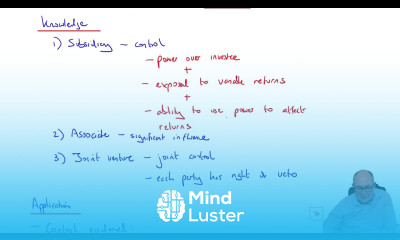 Knowledge
1) Subsidiary - control
- power over investee
+
- exposal to variable returns
+
- ability to use power to affect
returns
2) Associate - significant influence
3) Joint venture - joint control
- each party has right to veto
Mind
Luster
Application
- Control